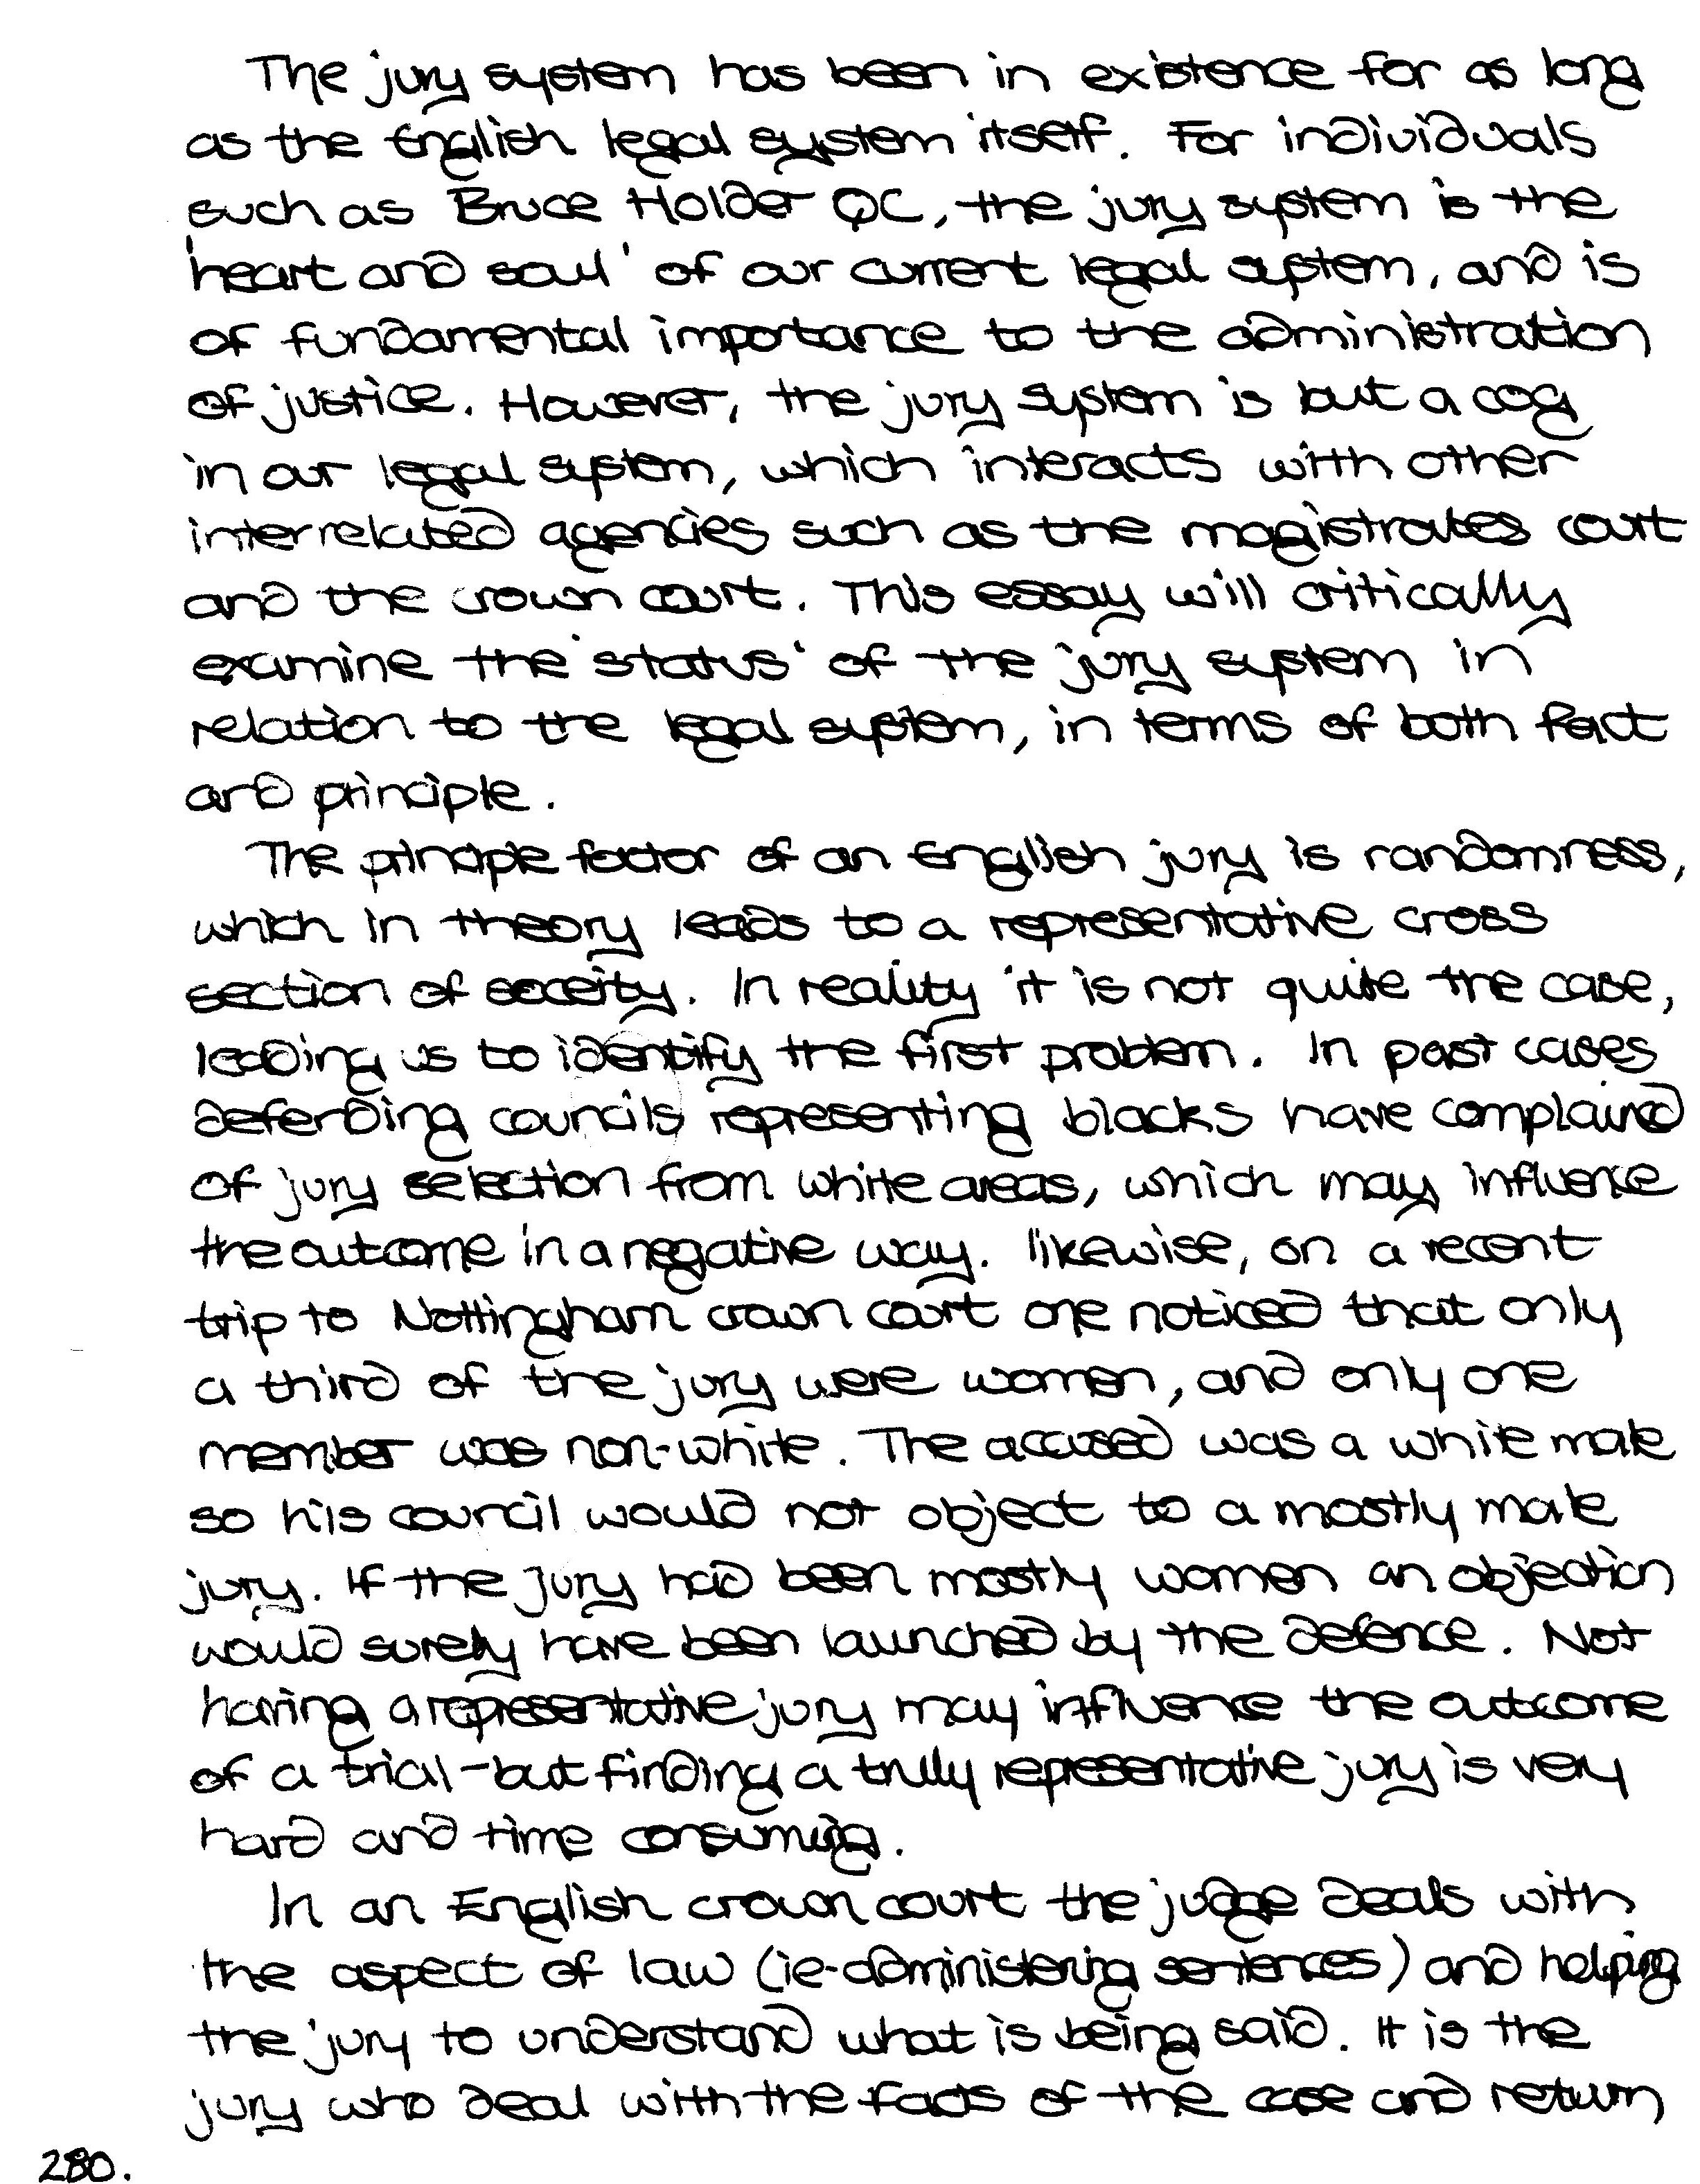 The jury system has been in existence for as long
as the English legal system itself. For individuals
such as Bruce Holder QC, the jury system is the
'heart and soul' of our current legal system, and is
of fundamental importance to the administration
of justice. However, the jury system is but a cog
in our legal system, which interacts with other
interrelated agencies such as the magistrates court
and the crown court. This essay will critically
examine the 'status' of the jury system in
relation to the legal system, in terms of both fact
and principle.
The principle factor of an English jury is randomness,
which in theory leads to a representative cross
section of soceity. In reality it is not quite the case,
leading us to identify the first problem. In past cases
defending councils representing blacks have complained
of jury selection from white areas, which may influence
the outcome in a negative way. likewise, on a recent
trip to Nottingham crown court one noticed that only
a third of the jury were women, and only one
member was non-white. The accused was a white male
so his council would not object to a mostly male
jury. If the jury had been mostly women an objection
would surely have been launched by the defence. Not
having a representative jury may influence the outcome
of a trial - but finding a truly representative jury is very
hard and time consuming.
In an English crown court the judge deals with
the aspect of law (ie-administering sentences) and helping
the jury to understand what is being said. It is the
jury who deal with the facts of the case and return
280.